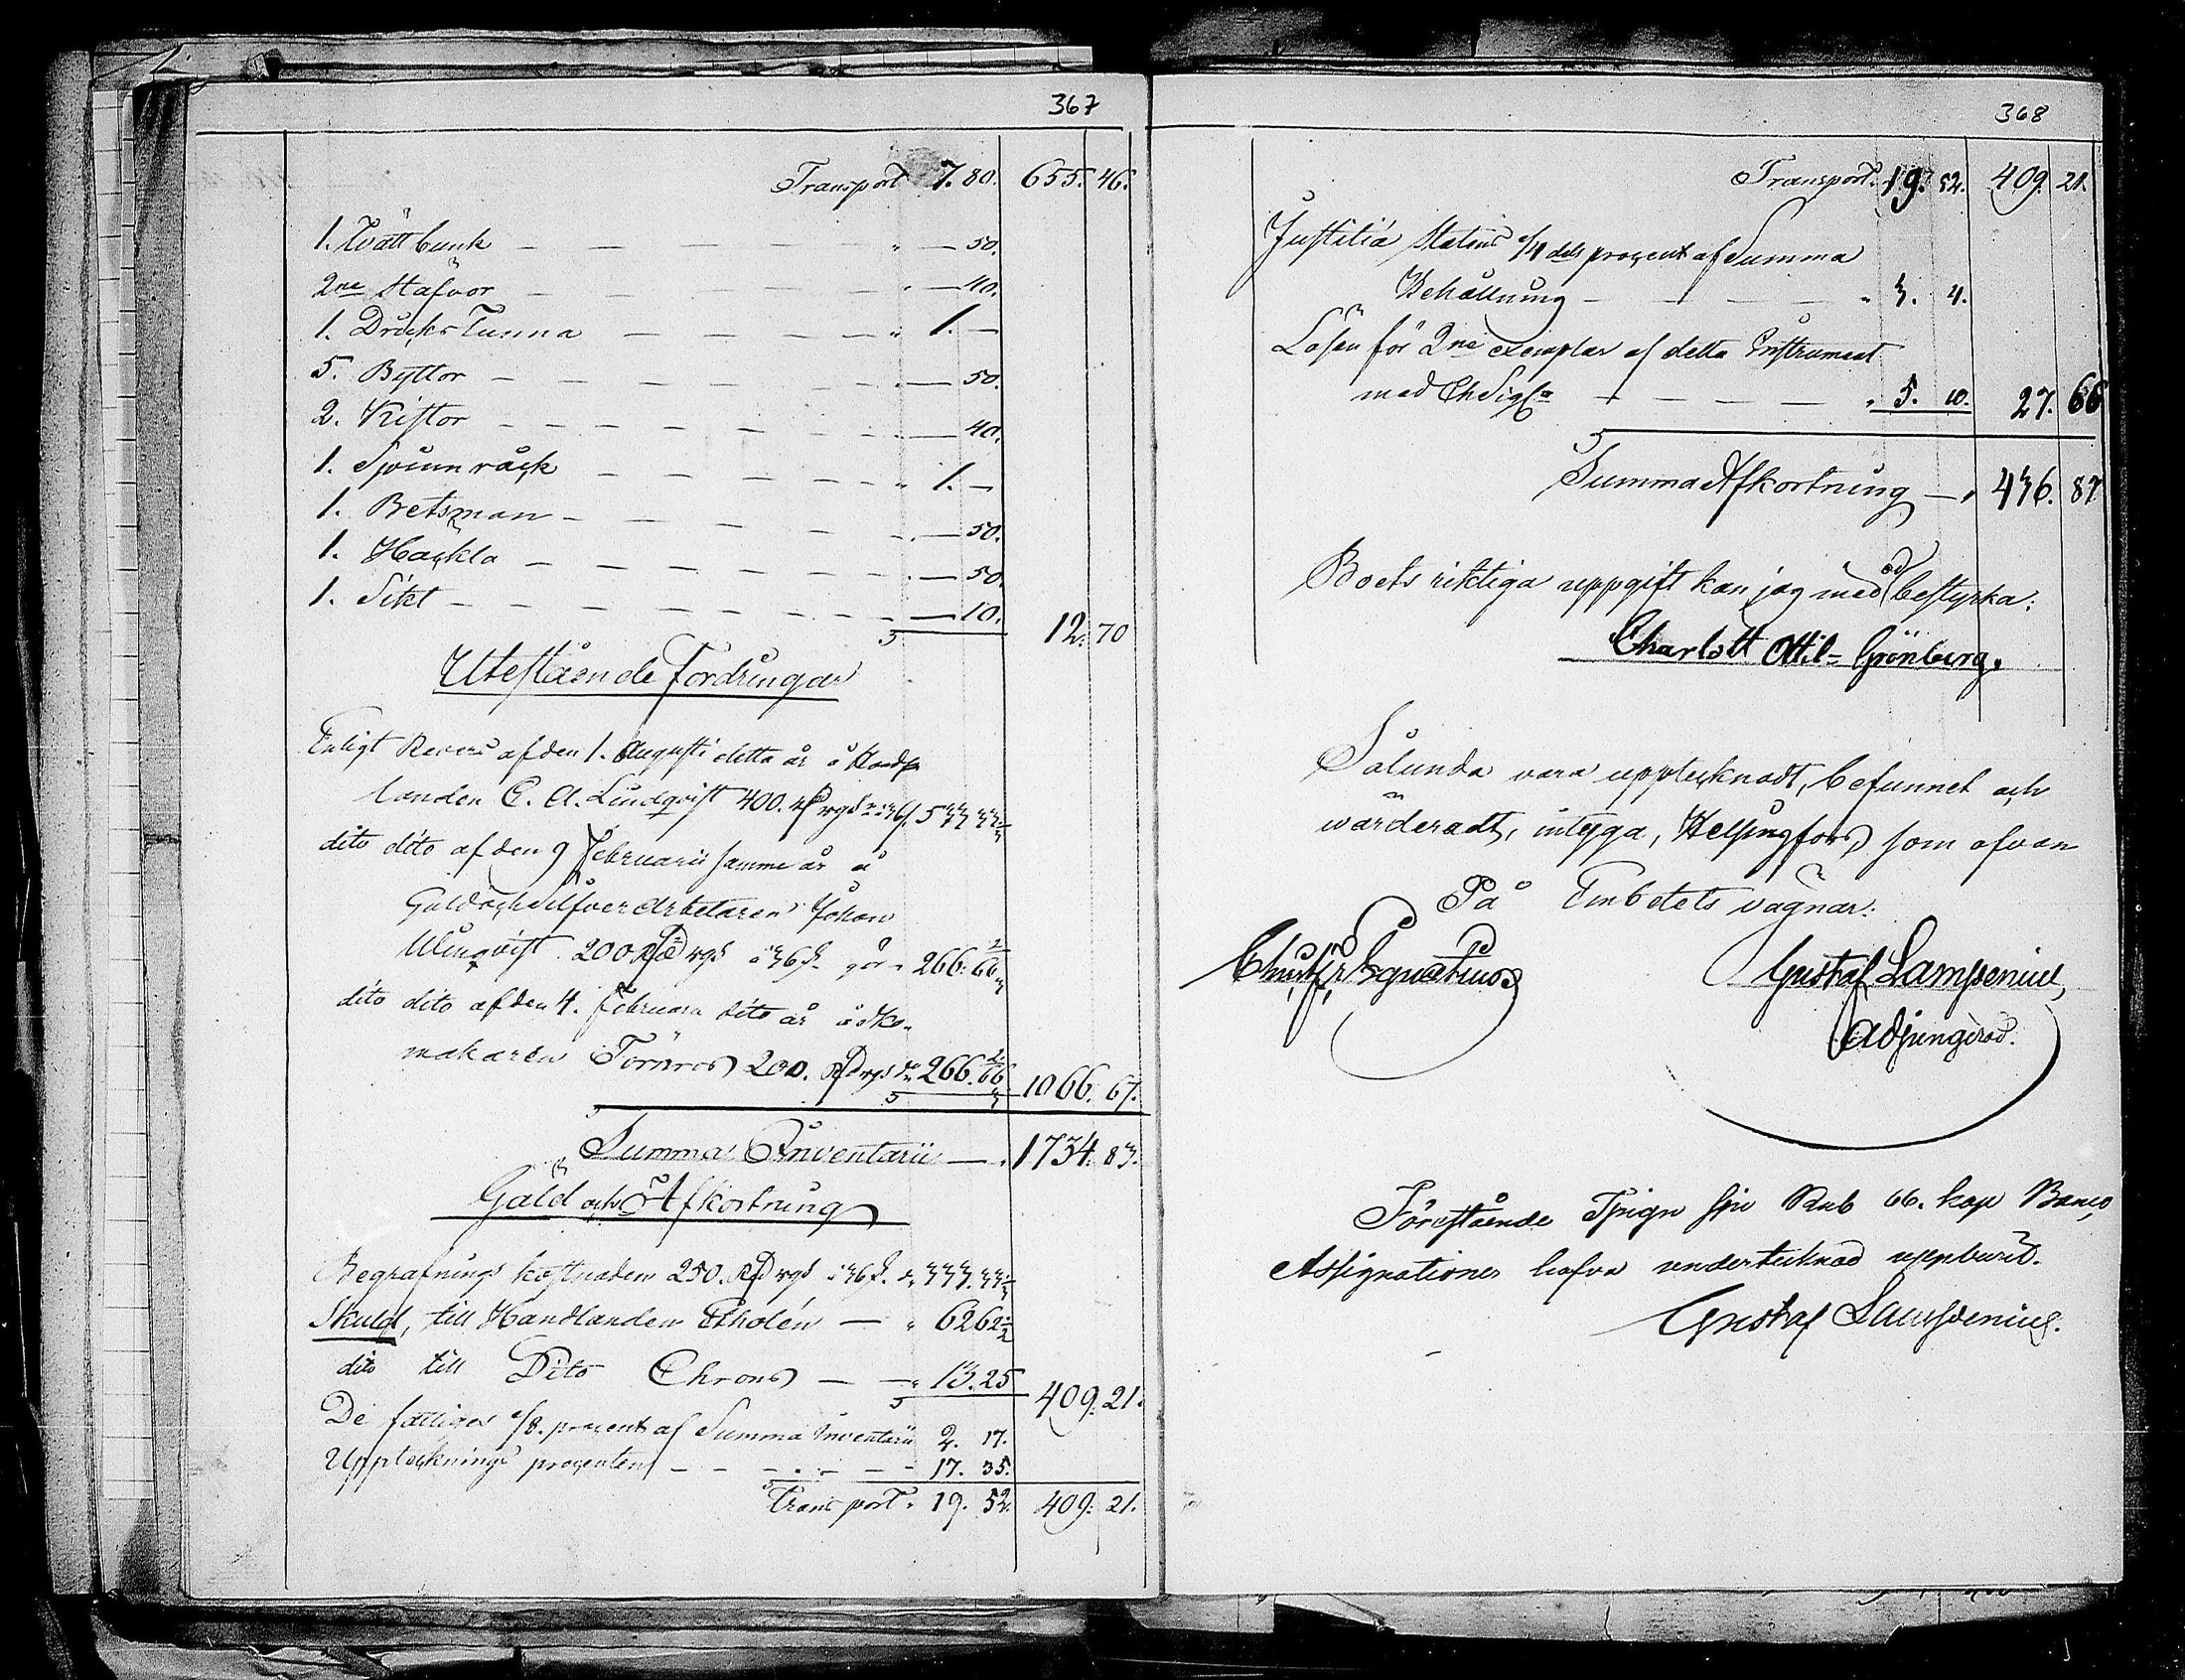 367
Transport 7. 80. 655. 46.
1. Tvätt bunk — — — — — " — 50.
2ne Stäfvor — — — — — " — 40.
1. Dricks Tunna — — — — " 1. —
5. Byttor — — — — — — " — 50.
2. Kistor — — — — — — " — 40.
1. Spinn råck — — — — — " 1. —
1. Betsman — — — — — " — 50.
1. Häckla — — — — — — " — 50.
1. Sikt — — — — — — — 10. 12. 70
Utestående Fordringar
Enligt Revers af den 1. Augusti detta år å Hand
landen C. A. Lindqvist 400. Rd rgs 533 33 1/3
dito dito af den 9 Februarii samme år å
Guld och Silfver Arbetaren Johan
200 Rd rgs à 36 s. gör " 266. 66 2/3
dito dito af den 4. Februarii dito år å
makaren Törnros 200. Rd rgs 266. 66 2/3 1066. 67.
Summa Inventarii — " 1734. 83.
Gäld och Afkortning
Begrafnings kostnaden 250. Rd rgs à 36 s. 333. 33 1/3
Skuld, till Handlanden Etholén — " 62 62 1/2
dito till Dito Ehrons — — " 13. 25 409. 21.
De fattiges 1/8. procent af Summa Inventarii 2. 17.
Uppteknings procenten — — — — — — 17. 35.
Transport " 19. 52. 409. 21.
368
Transport. 19. 52. 409. 21.
Justitiæ Statens 1/4 dels procent af Summa
Behållning — — — — " 3. 4.
Lösen för 2ne exemplar af detta Instrument
med — — — — " 5. 10. 27. 66
Summa Afkortning — " 436. 87
Boets riktiga uppgift kan jag med ed bestyrka:
Charlott Ottil- Grönberg.
Sålunda vara upptecknadt, befunnet och
värderadt, intyga, Helsingfors, som ofvan
På Embetets vägnar:
Christ: Ignatius
Gustaf Lampenius,
Adjungerad.
Förestående Tjugu sju Rub 66. kop Banco
Assignationer hafva undertecknad uppburit.
Gustaf Lampenius.